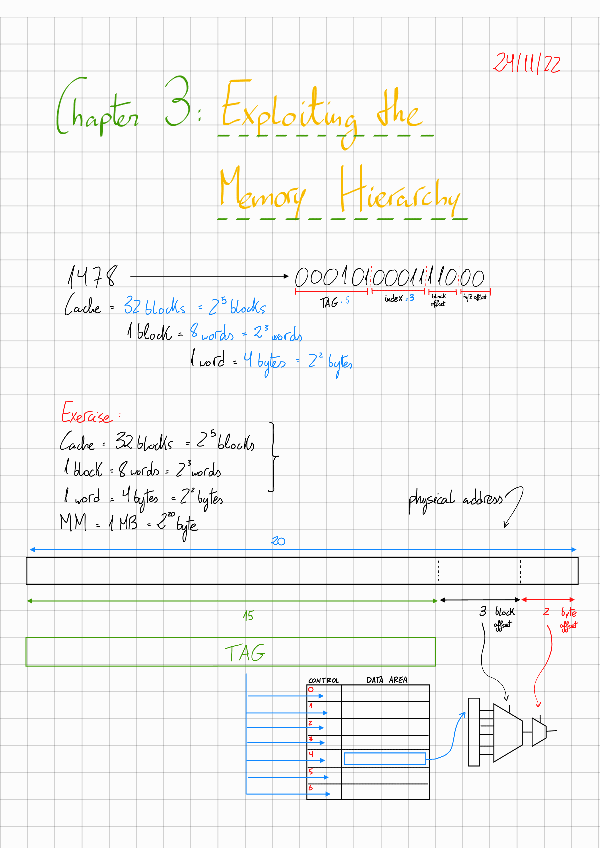 24/11/22
Chapter 3: Exploiting the
Memory Hierarchy
1478 000101:00011:110:00
TAG: 5 index: 3 block offset byte offset
Cache = 32 blocks = 2^5 blocks
1 block = 8 words = 2^3 words
1 word = 4 bytes = 2^2 bytes
Exercise:
Cache = 32 blocks = 2^5 blocks
1 block = 8 words = 2^3 words
1 word = 4 bytes = 2^2 bytes
physical address
MM = 1 MB = 2^20 byte
20
15
3 block offset 2 byte offset
TAG
CONTROL DATA AREA
0
1
2
3
4
5
6